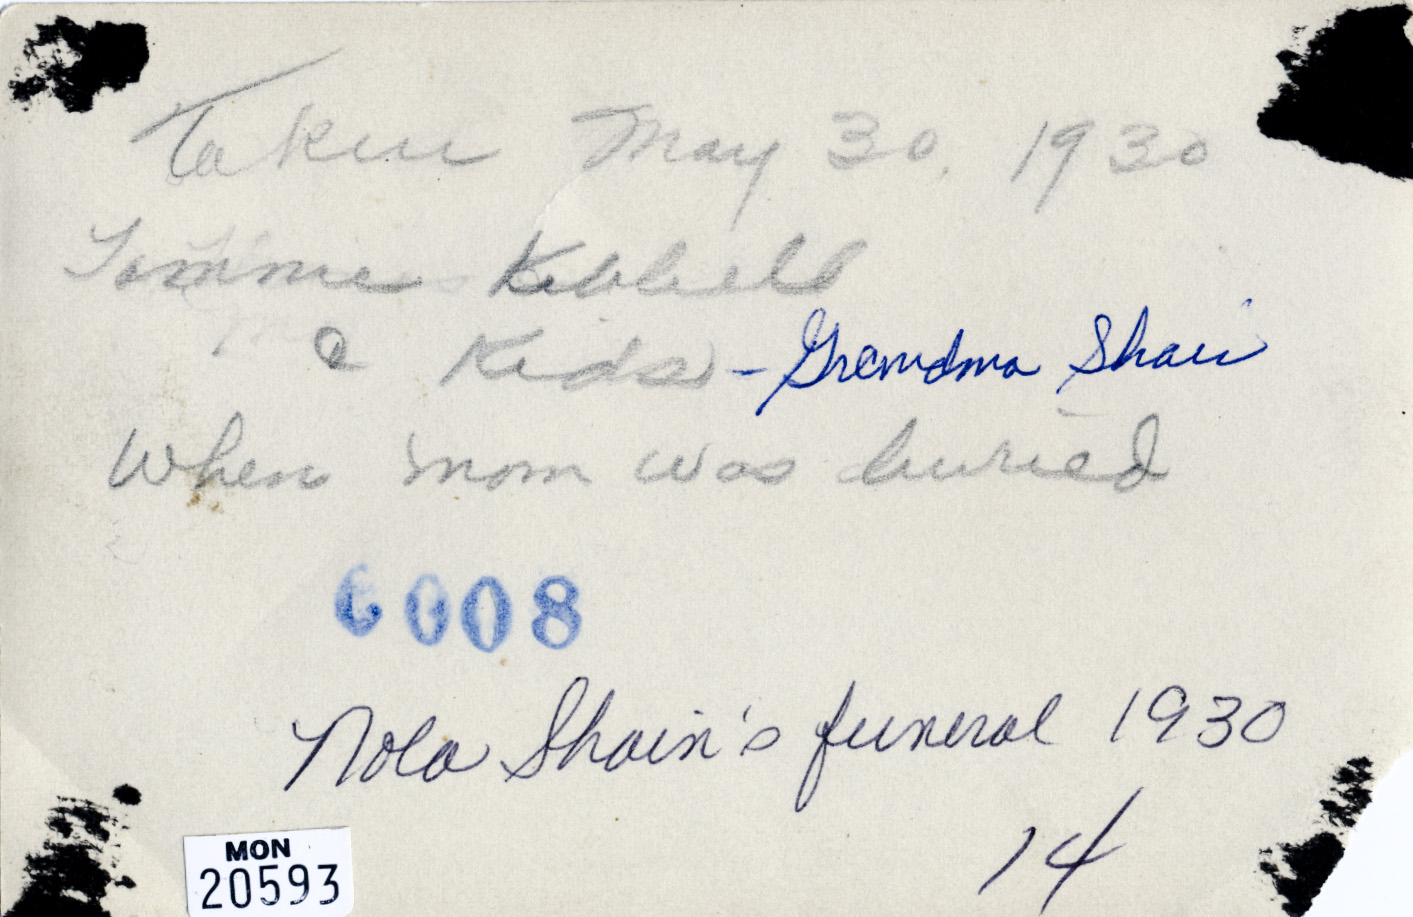 Taken May 30, 1930
Tommie
& Kids - Grandma Shain
When mom was buried
6008
Nola Shain's funeral 1930
14
MON
20593